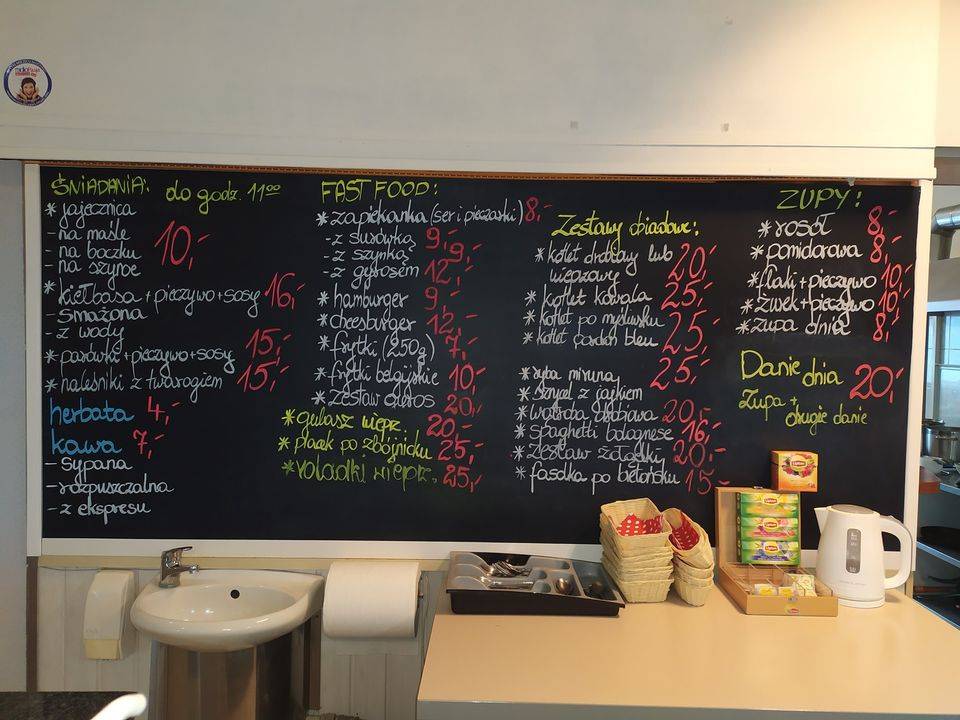 ŚNIADANIA: do godz. 11⁰⁰
* jajecznica
- na maśle
- na boczku 10,-
- na szynce
* kiełbasa + pieczywo + sosy 16,-
- smażona
- z wody
* parówka + pieczywo + sosy 15,-
* naleśniki z twarogiem 15,-
herbata 4,-
kawa 7,-
- sypana
- rozpuszczalna
- z ekspresu
FAST FOOD:
* zapiekanka (ser i pieczarki) 8,-
- z surówką 9,-
- z szynką 9,-
- z gyrosem 12,-
* hamburger 9,-
* cheesburger 12,-
* frytki (250g) 7,-
* frytki belgijskie 10,-
* zestaw 20,-
* gulasz wiepr. 20,-
* placek po zbójnicku 25,-
* roladki wieprz. 25,-
Zestawy obiadowe:
* kotlet drobiowy lub
wieprzowy 20,-
* kotlet kowala 25,-
* kotlet po myśliwsku
* kotlet bleu 25,-
* ryba miruna 25,-
z jajkiem
* wątróbka drobiowa 20,-
* spaghetti bolognese 16,-
* zestaw 20,-
* fasolka po bretońsku 15,-
ZUPY:
* rosół 8,-
* pomidorowa 8,-
* flaki + pieczywo 10,-
* żurek + pieczywo 10,-
* zupa dnia 8,-
Danie dnia 20,-
Zupa +
drugie danie
Lipton
Lipton
Lipton
Lipton